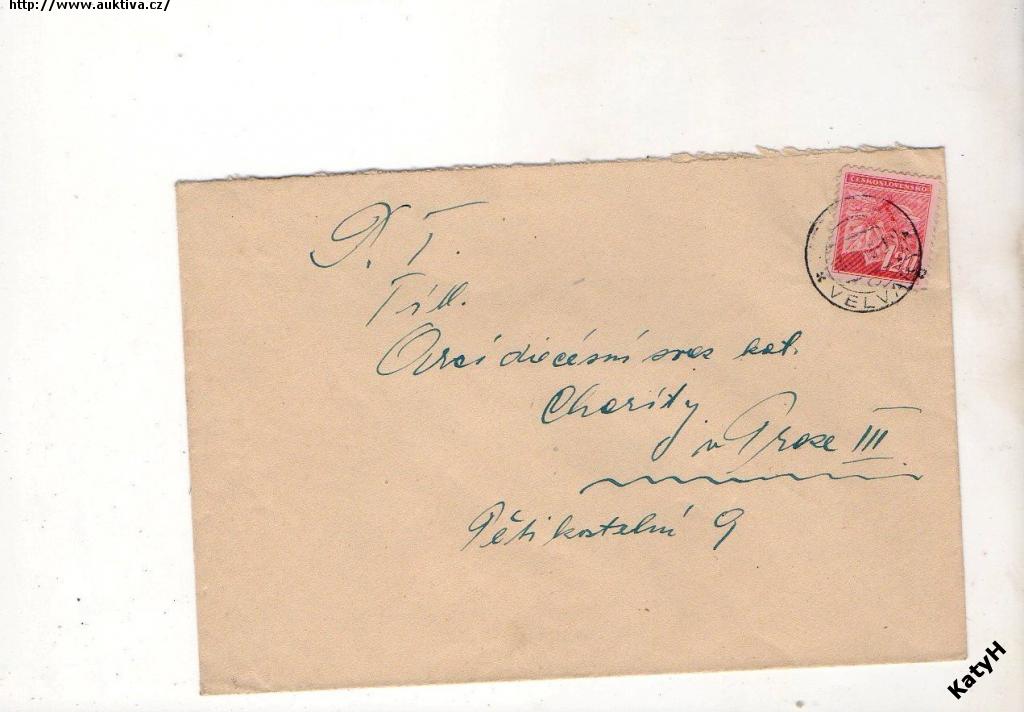 http://www.auktiva.cz/
ČESKOSLOVENSKO
1.20
* VELVARY *
P. T.
Tit.
Arcidiecésní svaz kat.
Charity
v Praze III
Pětikostelní 9
KatyH